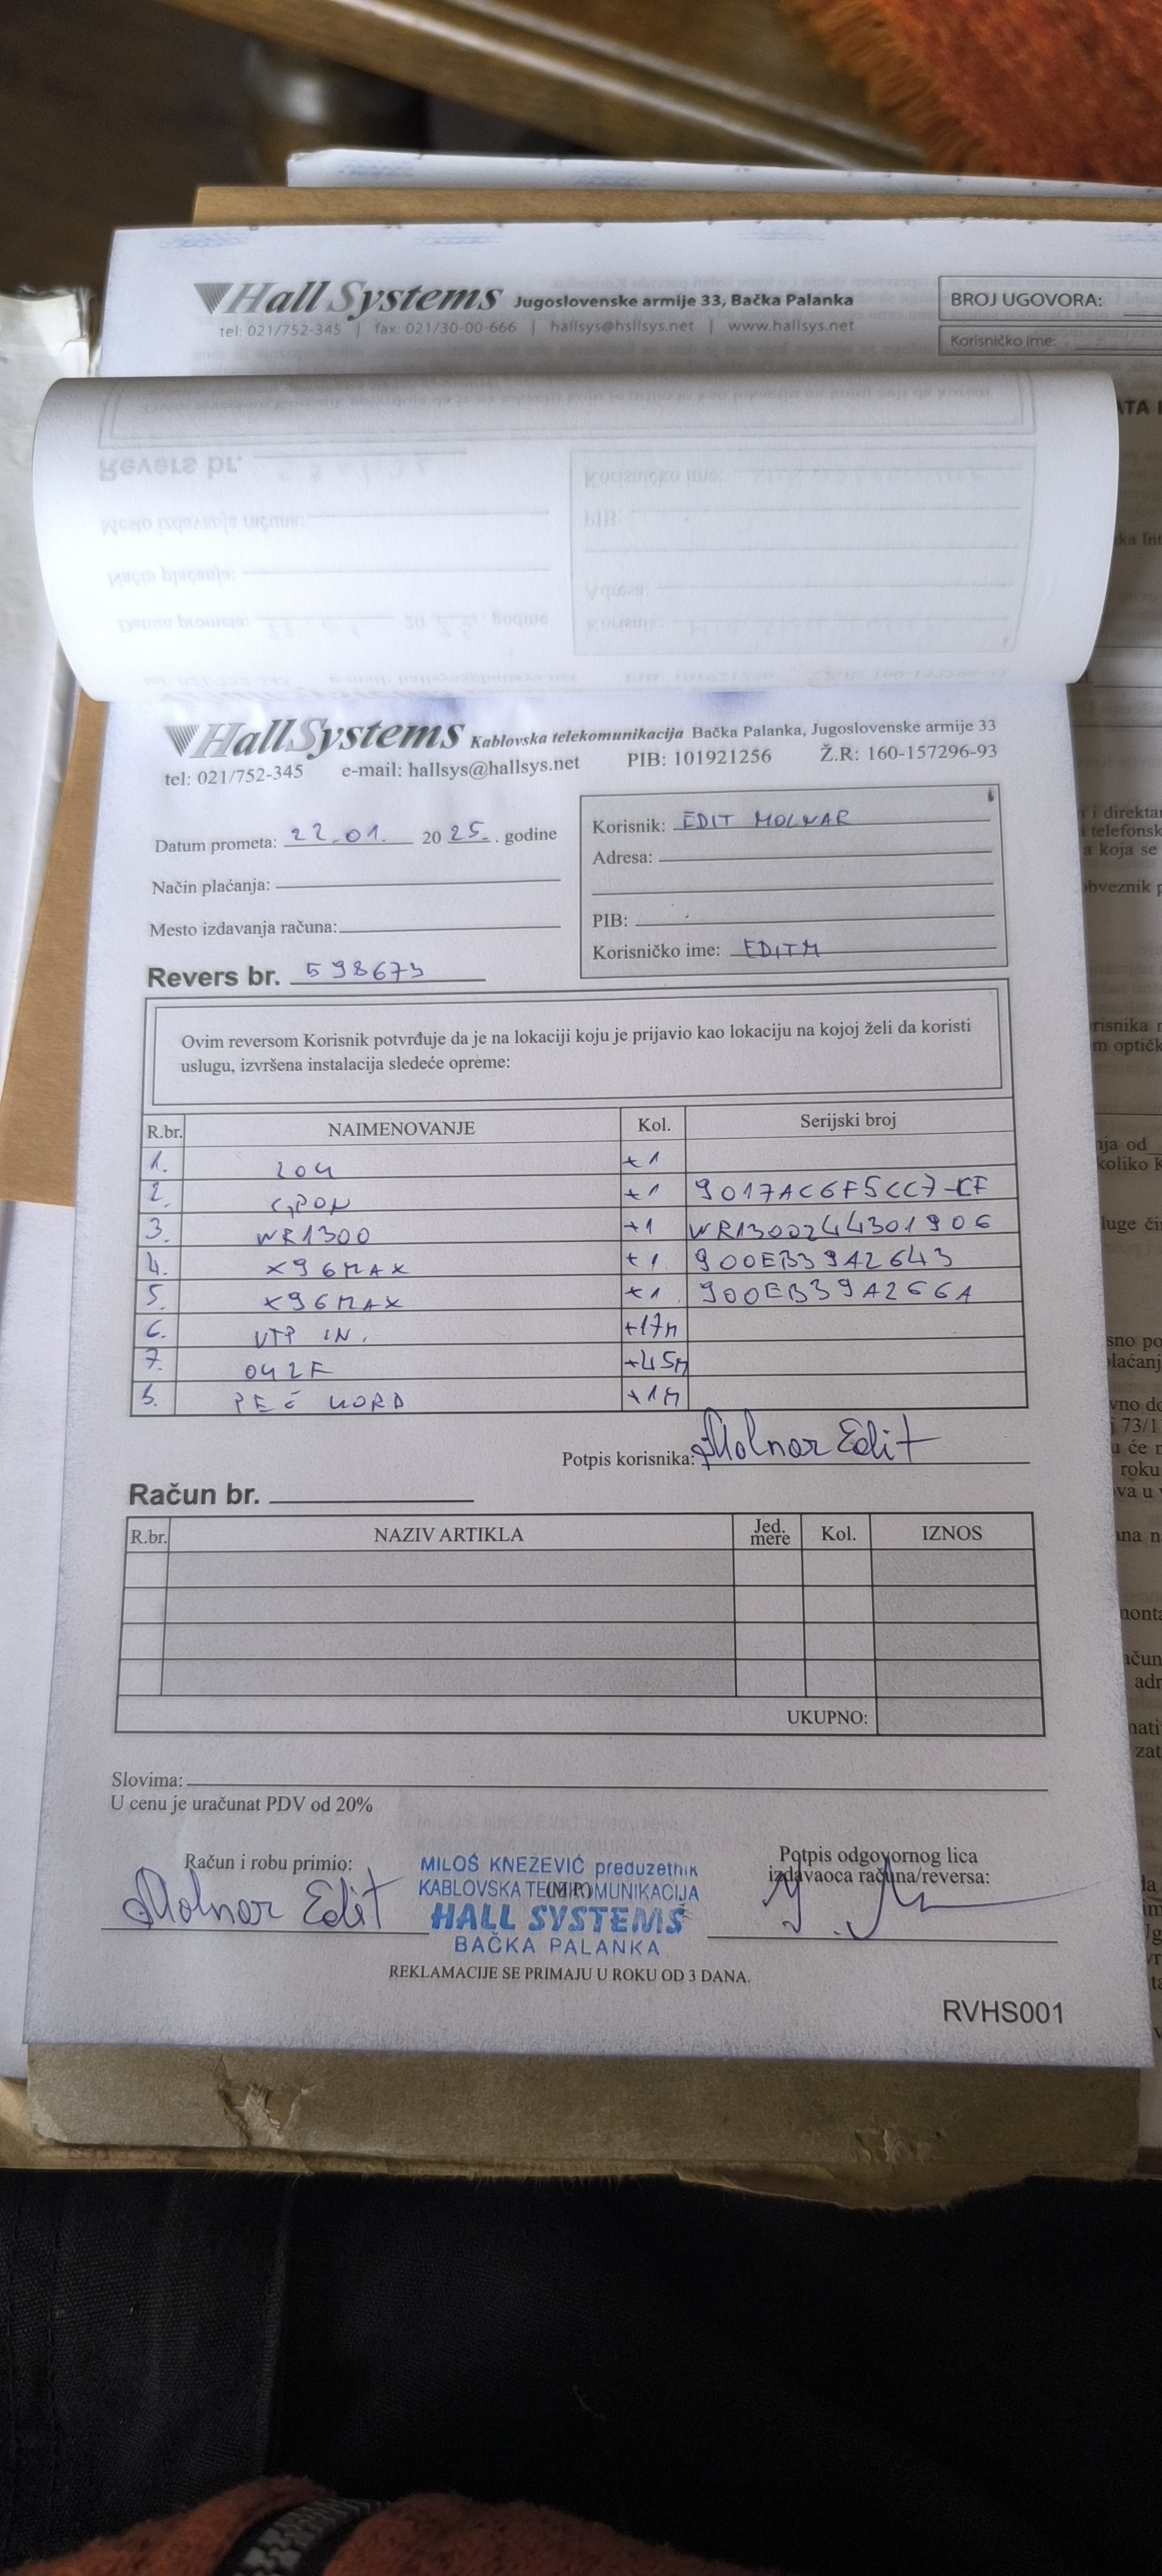 Hall Systems Jugoslovenske armije 33, Bačka Palanka
tel: 021/752-345 | fax: 021/30-00-666 | hallsys@hsllsys.net | www.hallsys.net
BROJ UGOVORA:
Korisničko ime:
Hall Systems Kablovska telekomunikacija Bačka Palanka, Jugoslovenske armije 33
tel: 021/752-345 e-mail: hallsys@hallsys.net PIB: 101921256 Ž.R: 160-157296-93
Datum prometa: 22.01. 20 25. . godine
Način plaćanja:
Mesto izdavanja računa:
Revers br. 598673
Korisnik: EDIT MOLNAR
Adresa:
PIB:
Korisničko ime: EDITM
Ovim reversom Korisnik potvrđuje da je na lokaciji koju je prijavio kao lokaciju na kojoj želi da koristi
uslugu, izvršena instalacija sledeće opreme:
R.br. NAIMENOVANJE Kol. Serijski broj
1. +1
2. GPON +1
3. WR1300 +1 WR1300244301906
4. X96MAX +1 900EB39A2643
5. X96MAX +1 900EB39A266A
6. UTP IN. +17M
7. +45M
8. +1M
Potpis korisnika: Molnar Edit
Račun br.
R.br. NAZIV ARTIKLA Jed. mere Kol. IZNOS
UKUPNO:
Slovima:
U cenu je uračunat PDV od 20%
Račun i robu primio:
Molnar Edit
MILOŠ KNEŽEVIĆ preduzetnik
KABLOVSKA TELEKOMUNIKACIJA
(M.P.)
HALL SYSTEMS
BAČKA PALANKA
Potpis odgovornog lica
izdavaoca računa/reversa:
REKLAMACIJE SE PRIMAJU U ROKU OD 3 DANA.
RVHS001